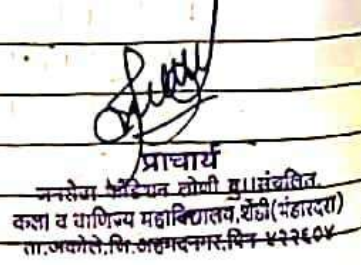 प्राचार्य
जनसेवा फौंडेशन लोणी बु।।संचलित,
कला व वाणिज्य महाविद्यालय,शेंडी(भंडारदरा)
ता.अकोले.जि.अहमदनगर.पिन ४२२६०४